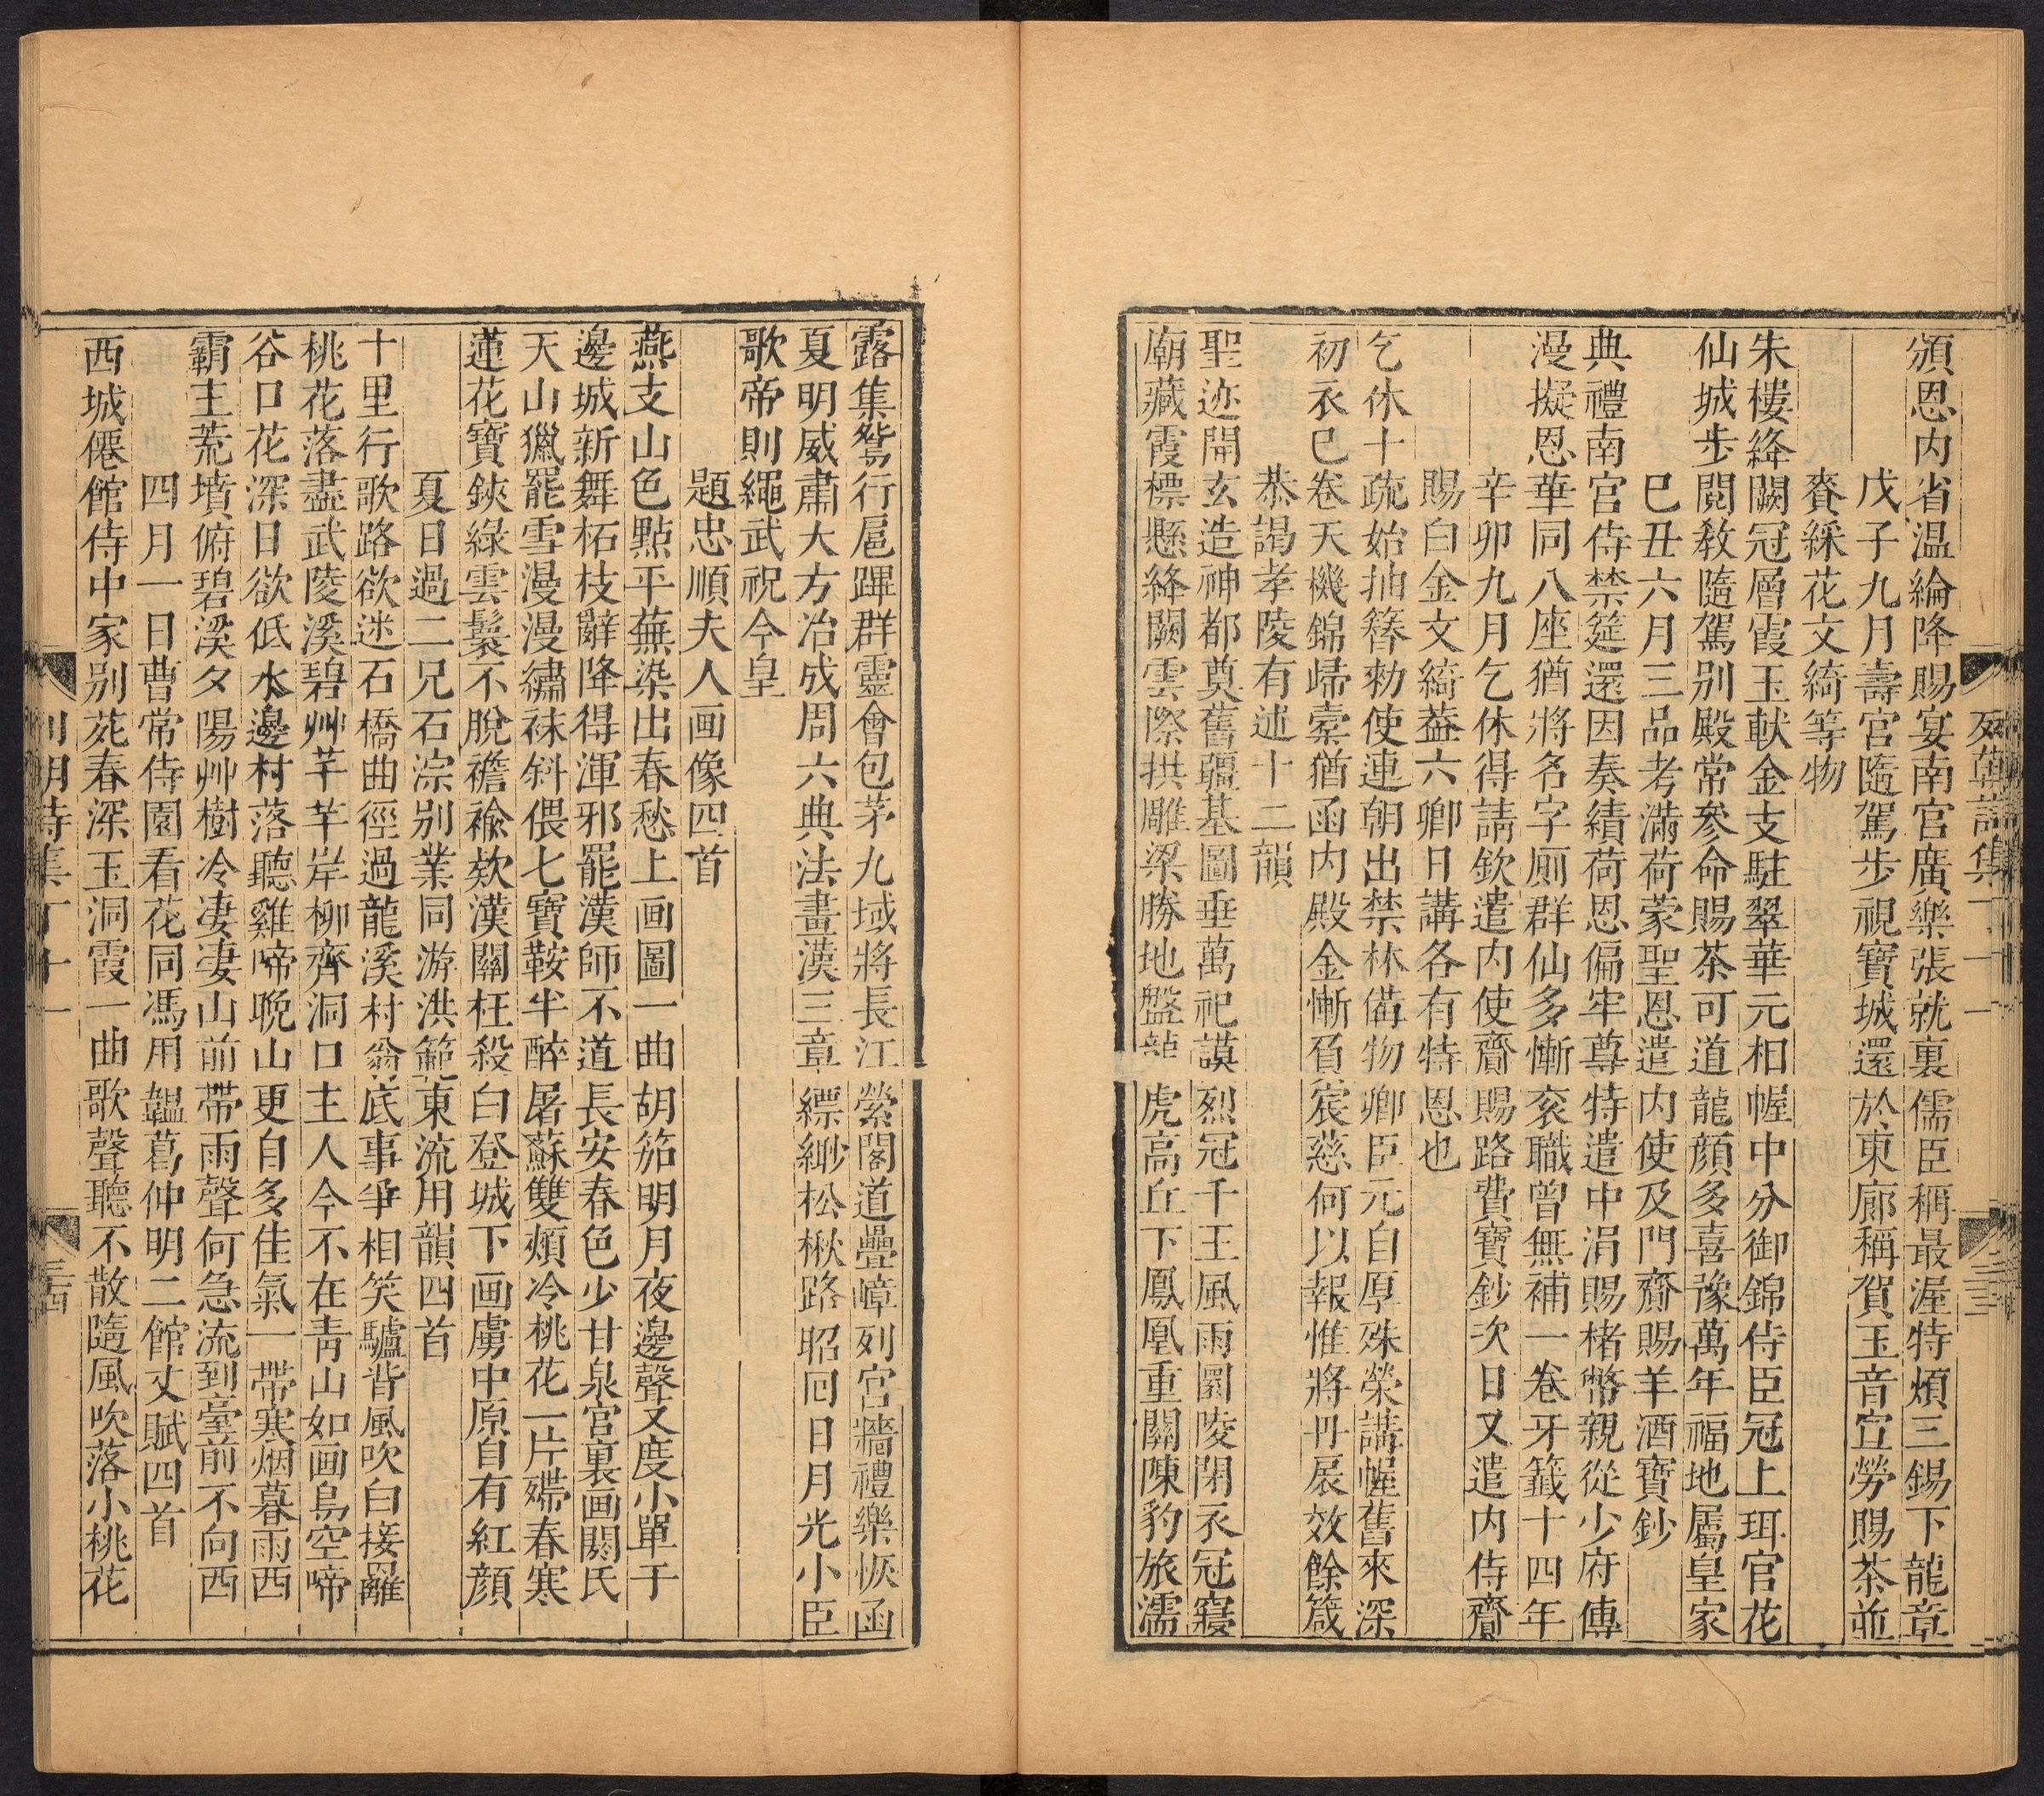 頒恩内省温綸降賜宴南宫廣樂張就裏儒臣稱最渥特煩三錫下龍章
戊子九月壽宫隨駕步視寶城還於東廊稱賀玉音宜勞賜茶並
賚綵花文綺等物
朱樓絳闕冠層霞玉軑金支駐翠華元相幄中分御錦侍臣冠上珥官花
仙城步閱敎隨駕别殿常參命賜茶可道龍顔多喜豫萬年福地屬皇家
巳丑六月三品考滿荷蒙聖恩遣内使及門齎賜羊酒寶鈔
典禮南宫侍禁筵還因奏績荷恩偏牢尊特遣中涓賜楮幣親從少府傳
漫擬恩華同八座猶將名字厠群仙多慚衮職曾無補一卷牙籖十四年
辛卯九月乞休得請欽遣内使齎賜路費寶鈔次日又遣内侍齎
賜白金文綺葢六卿日講各有特恩也
乞休十疏始抽簪勑使連朝出禁林備物卿臣元自厚殊榮講幄舊來深
初衣巳卷天機錦歸橐猶函内殿金慚負宸慈何以報惟將丹扆效餘箴
恭謁孝陵有述十二韻
聖迹開玄造神都奠舊疆基圖垂萬祀謨烈冠千王風雨園陵閉衣冠寢
廟藏霞標懸絳闕雲際拱雕梁勝地盤龍虎高丘下鳳凰重關陳豹旅濡
露集鴛行扈蹕群靈會包茅九域將長江縈閣道疊嶂列宫牆禮樂恢函
夏明威肅大方冶成周六典法畫漢三章縹緲松楸路昭囘日月光小臣
歌帝則繩武祝今皇
題忠順夫人画像四首
燕支山色點平蕪染出春愁上画圖一曲胡笳明月夜邊聲又度小單于
邊城新舞柘枝辭降得渾邪罷漢師不道長安春色少甘泉宫裏画閼氏
天山獵罷雪漫漫繡袜斜偎七寶鞍半醉屠蘇雙頰冷桃花一片殢春寒
蓮花寶鋏綠雲鬟不脫襜褕欵漢關枉殺白登城下画虜中原自有紅顔
夏日過二兄石淙别業同游洪範東流用韻四首
十里行歌路欲迷石橋曲徑過龍溪村翁底事爭相笑驢背風吹白接䍦
桃花落盡武陵溪碧艸芊芊岸柳齊洞口主人今不在青山如画鳥空啼
谷口花深日欲低水邊村落聽雞啼晚山更自多佳氣一帶寒烟暮雨西
霸主荒墳俯碧溪夕陽艸樹冷凄凄山前帶雨聲何急流到臺前不向西
四月一日曹常侍園看花同馮用韞葛仲明二館丈賦四首
西城僊館侍中家别苑春深玉洞霞一曲歌聲聽不散隨風吹落小桃花